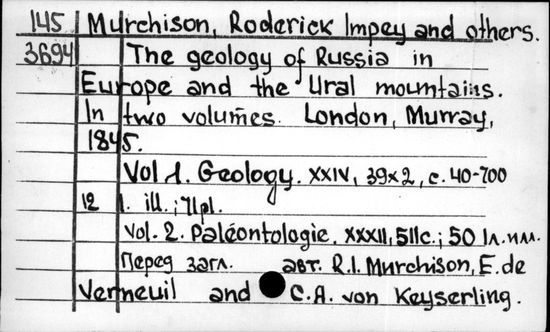 145 Murchison, Roderick Impey and others.
3694 The geology of Russia in
Europe and the Ural mountains.
In two volumes. London, Murray,
1845.
Vol 1. Geology. XXIV, 39×2, c. 40-700
12 l. ill.; 7 lpl.
Vol. 2. Paléontologie. XXXII, 511c.; 50 1л.илл.
Перед загл. авт. R.I. Murchison, E. de
Verneuil and C.A. von Keyserling.